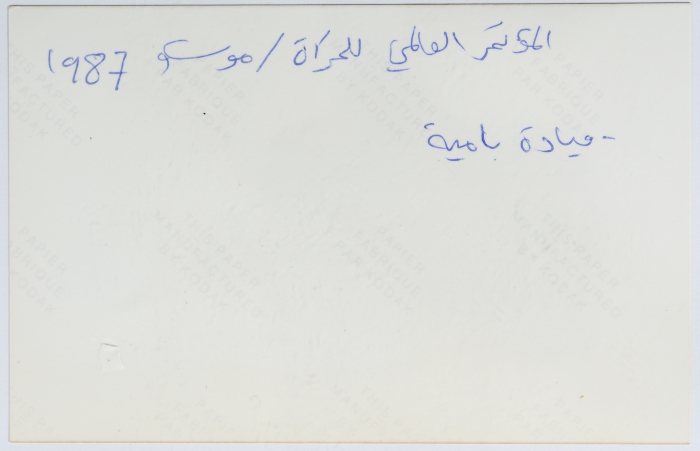 المؤتمر العالمي للمرأة / موسكو 1987
- ميادة بامية
THIS PAPER
MANUFACTURED
BY KODAK
PAPIER
FABRIQUE
PAR KODAK